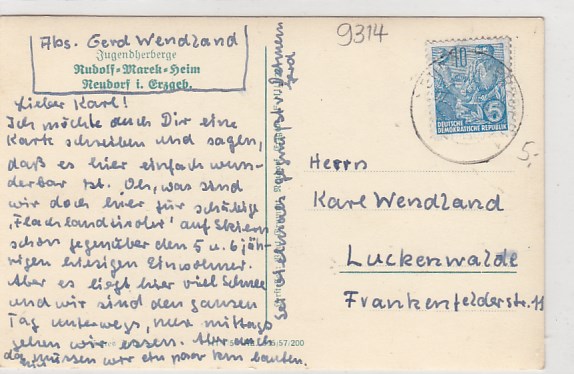 Abs. Gerd Wendland
Jugendherberge
Rudolf-Marek-Heim
Neudorf i. Erzgeb.
Lieber Karl!
Ich möchte auch Dir eine
Karte schreiben und sagen,
daß es hier einfach wun-
derbar ist. Oh, was sind
wir doch hier für schäbige
"Flachlandtiroler" auf Skiern
schon gegenüber den 5 u. 6 jäh-
rigen hiesigen Einwohner.
Aber es liegt hier viel Schnee
und wir sind den ganzen
Tag unterwegs, nur mittags
gehen wir essen. Aber auch
da müssen wir ein paar km laufen.
Sei vielmals gegrüßt v. Deinem
Gerd
9314
10
6
DEUTSCHE
DEMOKRATISCHE REPUBLIK
5,-
Herrn
Karl Wendland
Luckenwalde
Frankenfelderstr. 11
/57/200